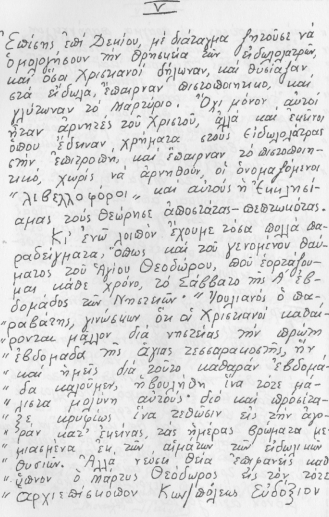 V
Ἐπίσης ἐπί Δεκίου, μέ διάταγμα ζητοῦσε νά
ὁμολογήσουν τήν θρησκεία τῶν εἰδωλολατρῶν,
καί ὅσοι Χριστιανοί δήλωναν, καί θυσίαζαν
στά εἴδωλα, ἔπαιρναν πιστοποιητικό, καί
γλύτωναν τό Μαρτύριο. Ὄχι μόνον αὐτοί
ἦταν ἀρνητές τοῦ Χριστοῦ, ἀλλά καί ἐκεῖνοι
ὅπου ἔδειναν, χρήματα στούς εἰδωλολάτρας
στήν ἐπιτροπή, καί ἔπαιρναν τό πιστοποιη-
τικό, χωρίς νά ἀρνηθοῦν, οἱ ὀνομαζόμενοι
"λιβελλοφόροι" καί αὐτούς ἡ Ἐκκλησία
μας τούς θεώρησε ἀποστάτας-πεπτωκότας.
Κι' ἐνῶ λοιπόν ἔχουμε τόσα πολλά πα-
ραδείγματα, ὅπως καί τοῦ γενομένου θαύ-
ματος τοῦ Ἁγίου Θεοδώρου, πού ἑορτάζου-
με κάθε χρόνο, τό Σάββατο τῆς Α' ἑβ-
δομάδος τῶν Νηστειῶν. "Ἰουλιανός ὁ πα-
"ραβάτης, γινώσκων ὅτι οἱ Χριστιανοί καθαί-
"ρονται μᾶλλον διά νηστείας τήν πρώτη
"ἑβδομάδα τῆς ἁγίας τεσσαρακοστῆς, ἥν
"καί ἡμεῖς διά τοῦτο καθαράν ἑβδομά-
"δα καλοῦμεν, ἠβουλήθη ἵνα τότε μά-
"λιστα μολύνη αὐτούς. διό καί προσέτα-
"ξε κρυφίως ἵνα τεθῶσιν εἰς τήν ἀγο-
"ράν κατ' ἐκείνας, τάς ἡμέρας βρώματα με-
"μιασμένα ἐκ τῶν αἱμάτων τῶν εἰδωλικῶν
"θυσιῶν. Ἀλλά νεύσει θεία ἐπιφανείς καθ'
"ὕπνον ὁ Μάρτυς Θεόδωρος εἰς τόν τότε
"ἀρχιεπίσκοπον Κων/πόλεως Εὐδόξιον